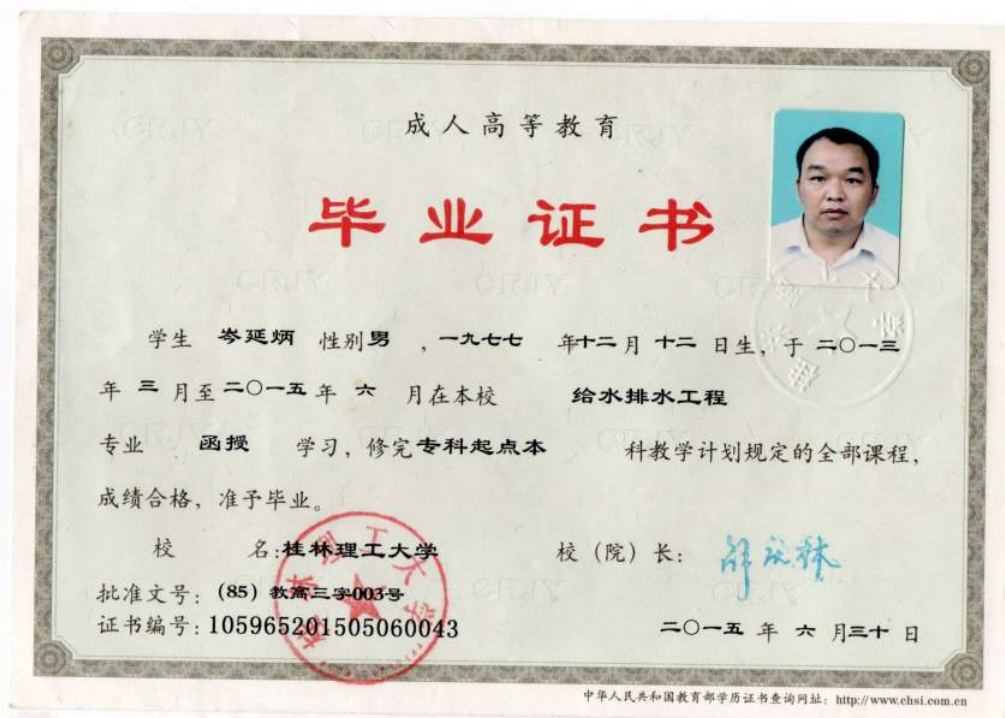 成人高等教育
毕业证书
学生 岑延炳 性别男 ,一九七七 年十二月 十二 日生,于 二〇一三
年 三 月至 二〇一五 年 六 月在本校 给水排水工程
专业 函授 学习,修完 专科起点本 科教学计划规定的全部课程,
成绩合格,准予毕业。
校 名:桂林理工大学 校(院)长:
批准文号:(85)教高三字003号
证书编号:105965201505060043 二〇一五 年 六 月三十 日
桂林理工大学
中华人民共和国教育部学历证书查询网址:http://www.chsi.com.cn